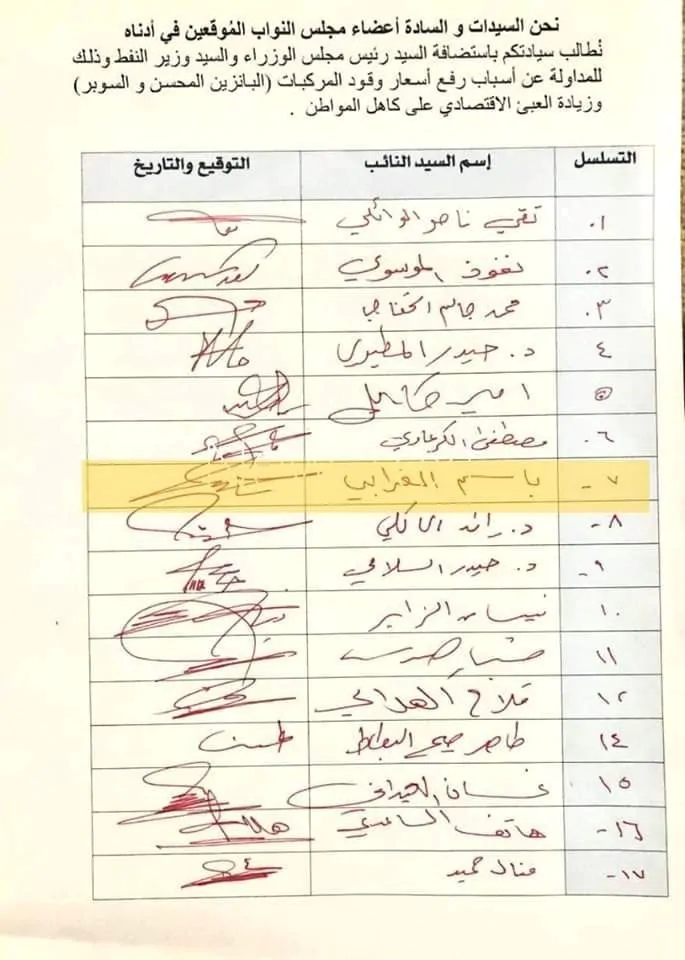 نحن السيدات و السادة أعضاء مجلس النواب المُوقعين في أدناه
نُطالب سيادتكم باستضافة السيد رئيس مجلس الوزراء والسيد وزير النفط وذلك
للمداولة عن أسباب رفع أسعار وقود المركبات (البانزين المحسن و السوبر)
وزيادة العبئ الاقتصادي على كاهل المواطن .
التسلسل إسم السيد النائب التوقيع والتاريخ
.١ تقي ناصر الوائلي
.٢ نفوذ الموسوي
.٣ محمد جاسم الخفاجي
٤ د. حيدر المطيري
٥ امير
.٦ مصطفى الكرعاوي
-٧ باسم الغرابي
-٨ د. رائد المالكي
-٩ د. حيدر السلامي
١٠. نيسان الزاير
١١
١٢ فلاح الهلالي
١٤ طاهر
١٥ غسان العيداني
١٦- هاتف الساعدي
١٧- منال حميد